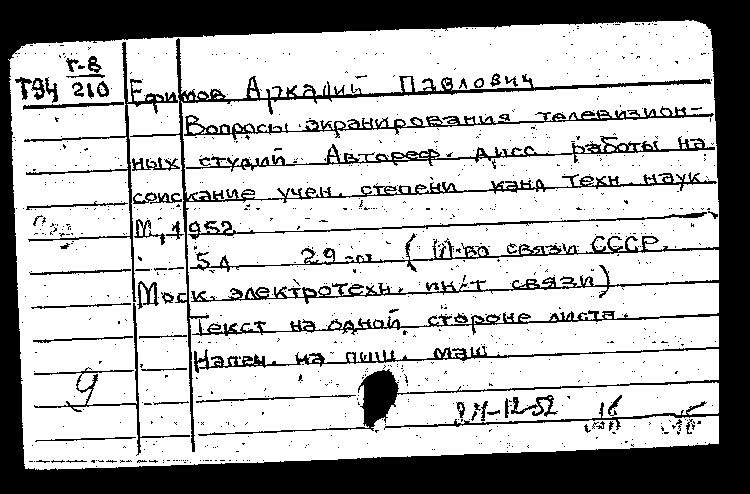 Т94 Г-8/210
Ефимов, Аркадий Павлович
Вопросы экранирования телевизион-
ных студий. Автореф. дисс. работы на
соискание учен. степени канд техн. наук.
М., 1952.
5 л. 29 см. (М-во связи СССР.
Моск. электротехн. ин-т связи)
Текст на одной стороне листа.
Напеч. на пиш. маш.
9
16